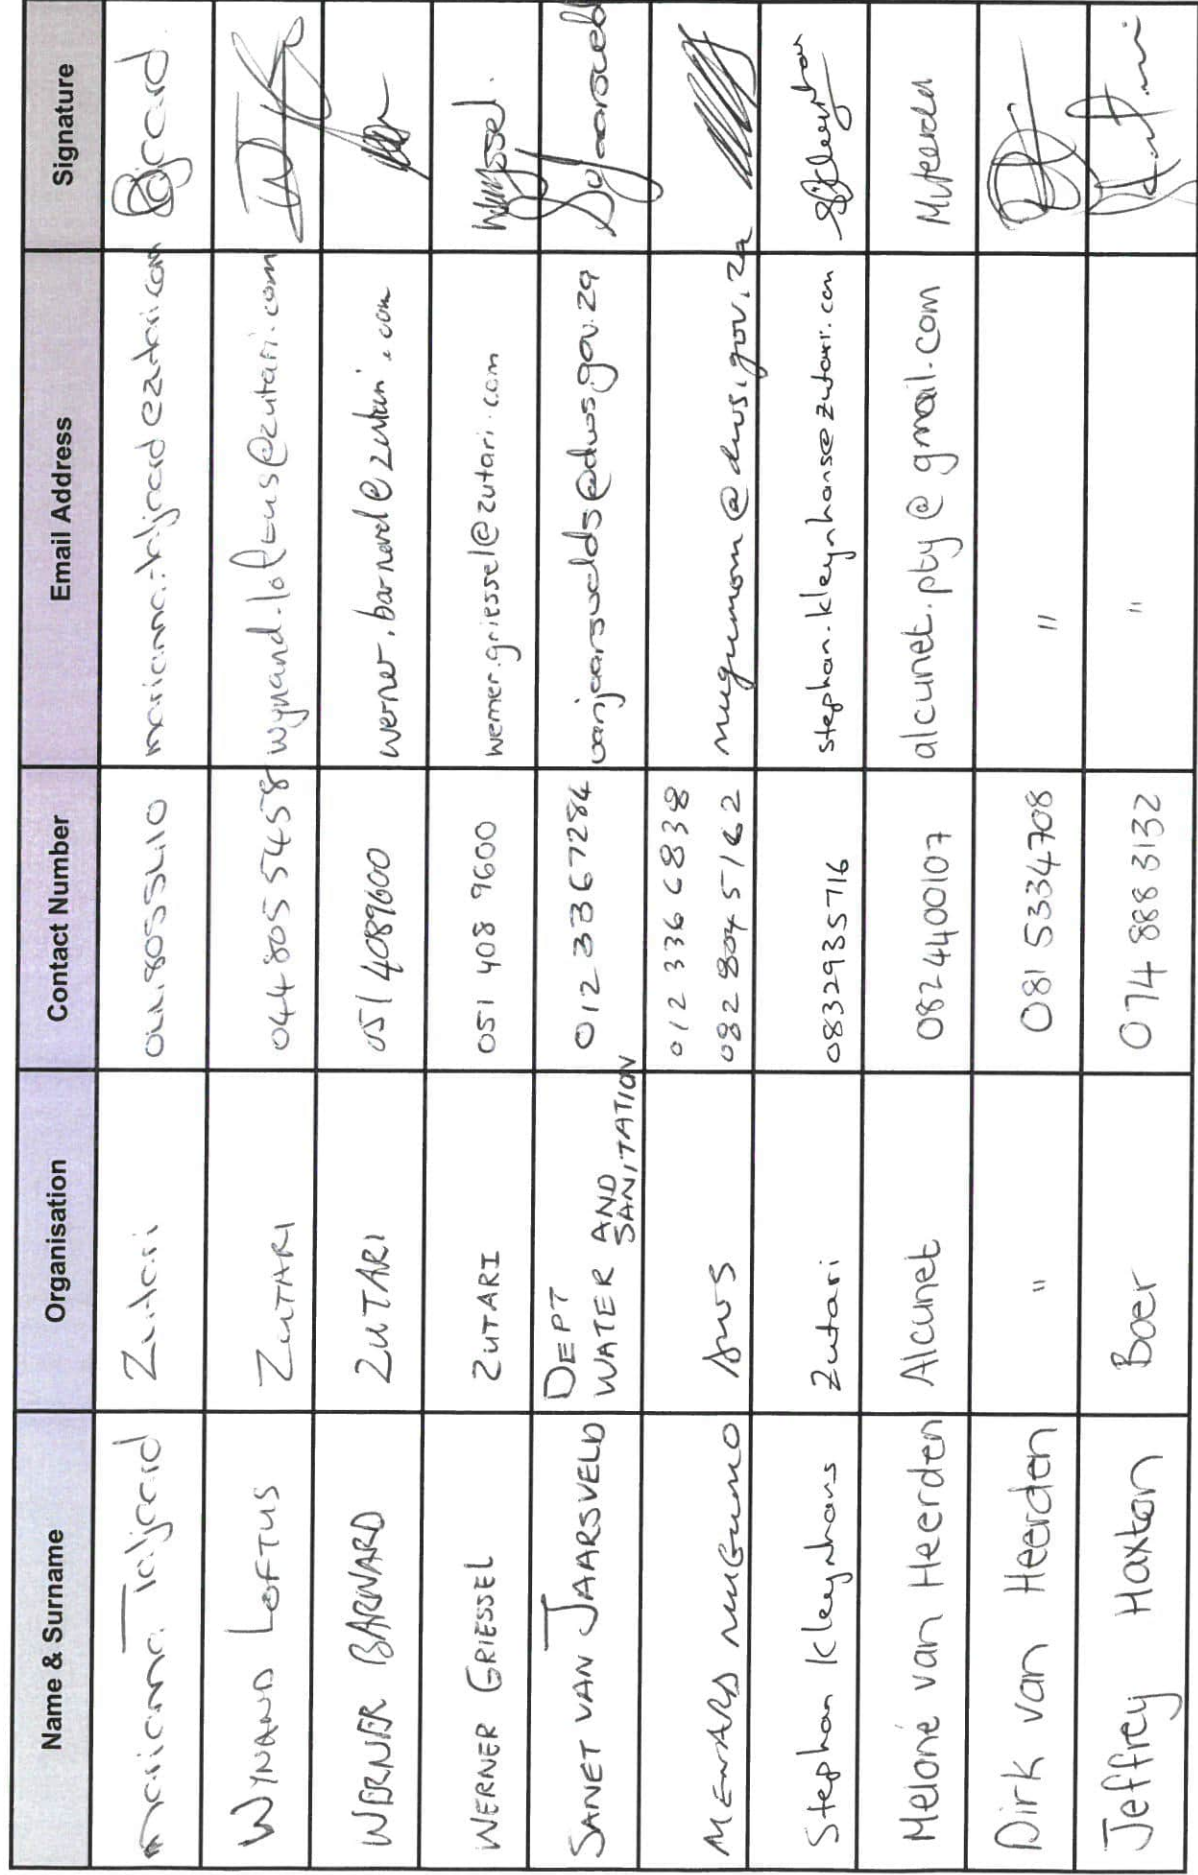 Name & Surname Organisation Contact Number Email Address Signature
Marianna Taljaard Zutari 044 8055410 marianna.taljaard@zutari.com
WYNAND LOFTUS ZUTARI 044 805 5458 wynand.loftus@zutari.com
WERNER BARNARD ZUTARI 051 4089600 werner.barnard@zutari.com
WERNER GRIESSEL ZUTARI 051 408 9600 werner.griessel@zutari.com WGriessel
SANET VAN JAARSVELD DEPT WATER AND SANITATION 012 3367284 vanjaarsvelds@dws.gov.za
DWS 012 336 6838
082 804 5162
Stephan Kleynhans Zutari 0832935716 stephan.kleynhans@zutari.com
Meloné van Heerden Alcunet 0824400107 alcunet.pty@gmail.com
Dirk van Heerden " 081 5334708 "
Jeffrey Haxton Boer 074 888 3132 "